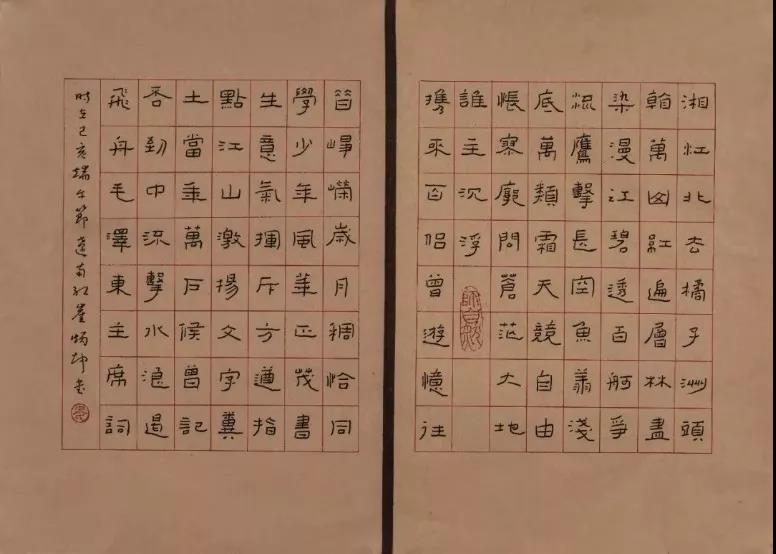 湘江北去橘子洲頭
翰萬山紅遍層林盡
染漫江碧透百舸爭
流鷹擊長空魚翔淺
底萬類霜天競自由
悵寥廓問蒼茫大地
誰主沉浮
携來百侣曾遊憶往
昔崢嶸歲月稠恰同
學少年風華正茂書
生意氣揮斥方遒指
點江山激揚文字糞
土當年萬戶侯曾記
否到中流擊水浪遏
飛舟毛澤東主席詞
時在己亥端午節遼南紅崖